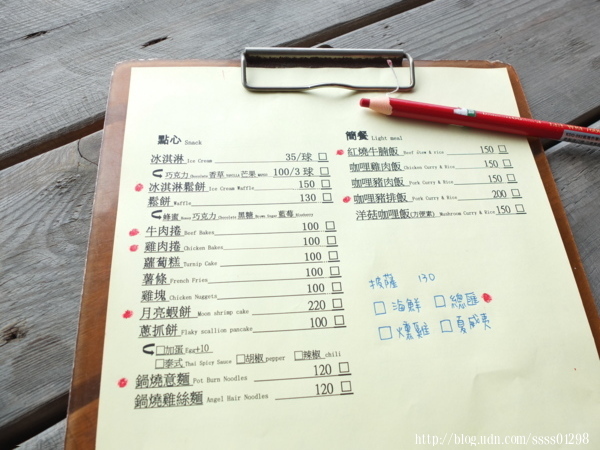 點心 Snack
冰淇淋 Ice Cream 35/球 □
巧克力 Chocolate 香草 Vanilla 芒果 Mango 100/3球 □
冰淇淋鬆餅 Ice Cream Waffle 150 □
鬆餅 Waffle 130 □
蜂蜜 Honey 巧克力 Chocolate 黑糖 Brown Sugar 藍莓 Blueberry
牛肉捲 Beef Bakes 100 □
雞肉捲 Chicken Bakes 100 □
蘿蔔糕 Turnip Cake 100 □
薯條 French Fries 100 □
雞塊 Chicken Nuggets 100 □
月亮蝦餅 Moon shrimp cake 220 □
蔥抓餅 Flaky scallion pancake 100 □
□加蛋 Egg+10
□泰式 Thai Spicy Sauce □胡椒 pepper □辣椒 chili
鍋燒意麵 Pot Burn Noodles 120 □
鍋燒雞絲麵 Angel Hair Noodles 120 □
簡餐 Light meal
紅燒牛腩飯 Beef Stew & rice 150 □
咖哩雞肉飯 Chicken Curry & Rice 150 □
咖哩豬肉飯 Pork Curry & Rice 150 □
咖哩豬排飯 Pork Curry & Rice 200 □
洋菇咖哩飯(方便素) Mushroom Curry & Rice 150 □
披薩 130
□ 海鮮 □ 總匯
□ 燻雞 □ 夏威夷
http://blog.udn.com/ssss01298